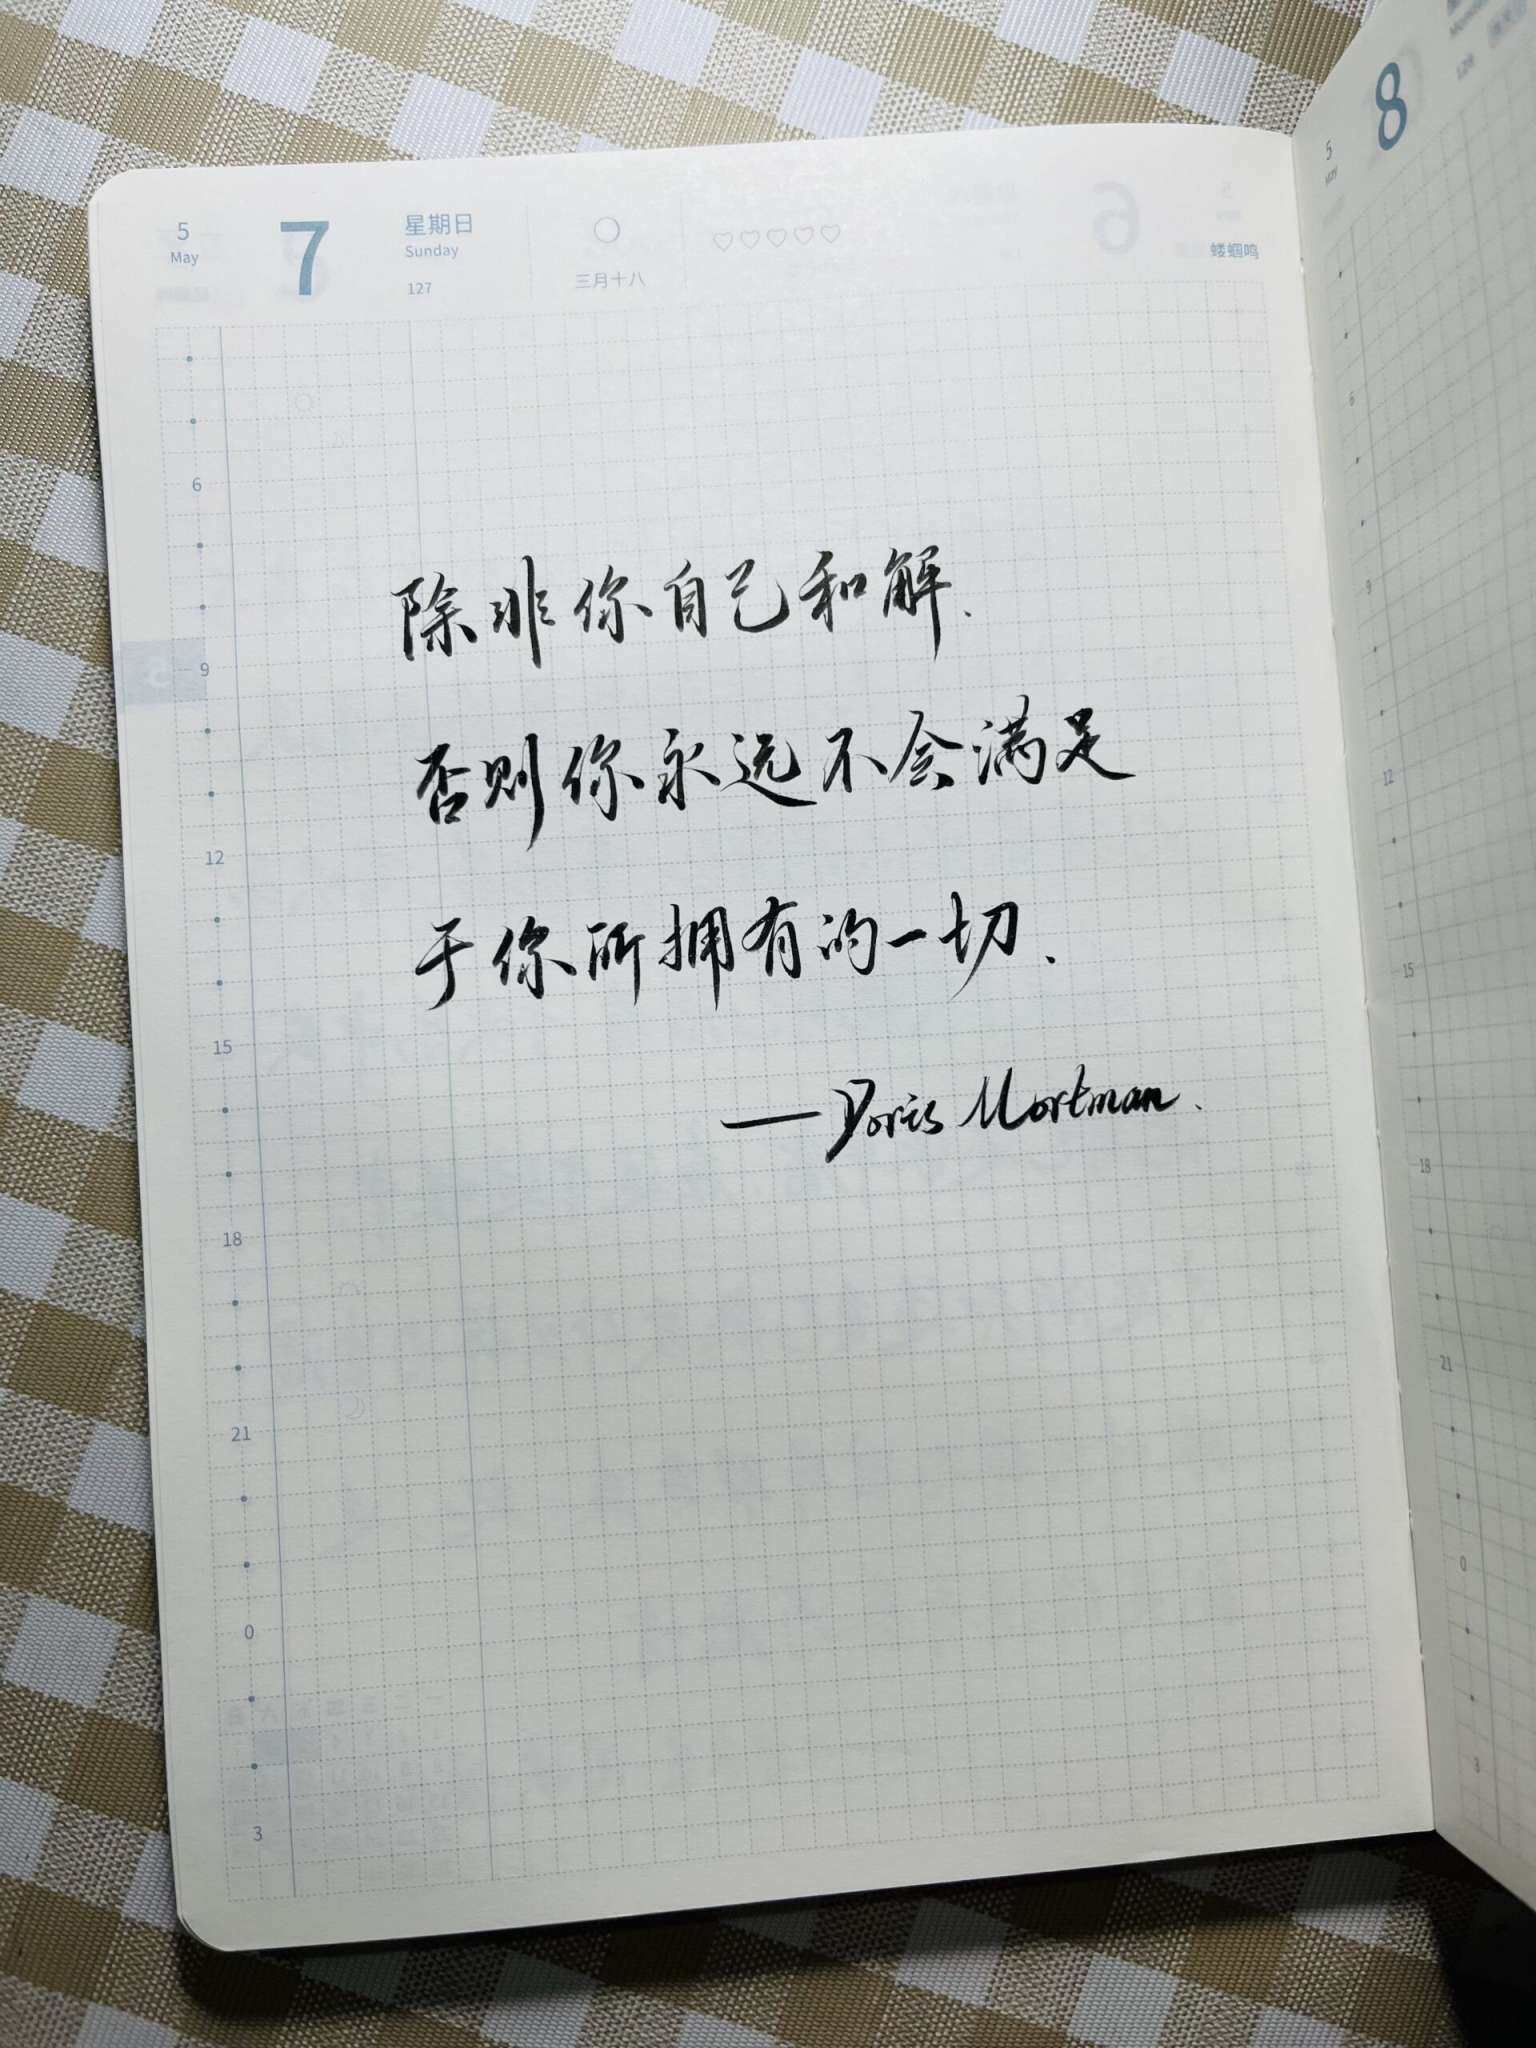 5
May
7
星期日
Sunday
127
三月十八
♡♡♡♡♡
蝼蝈鸣
6
9
12
15
18
21
0
3
除非你自己和解.
否则你永远不会满足
于你所拥有的一切.
—Doris Mortman.
5
May
8
6
9
12
15
18
21
0
3